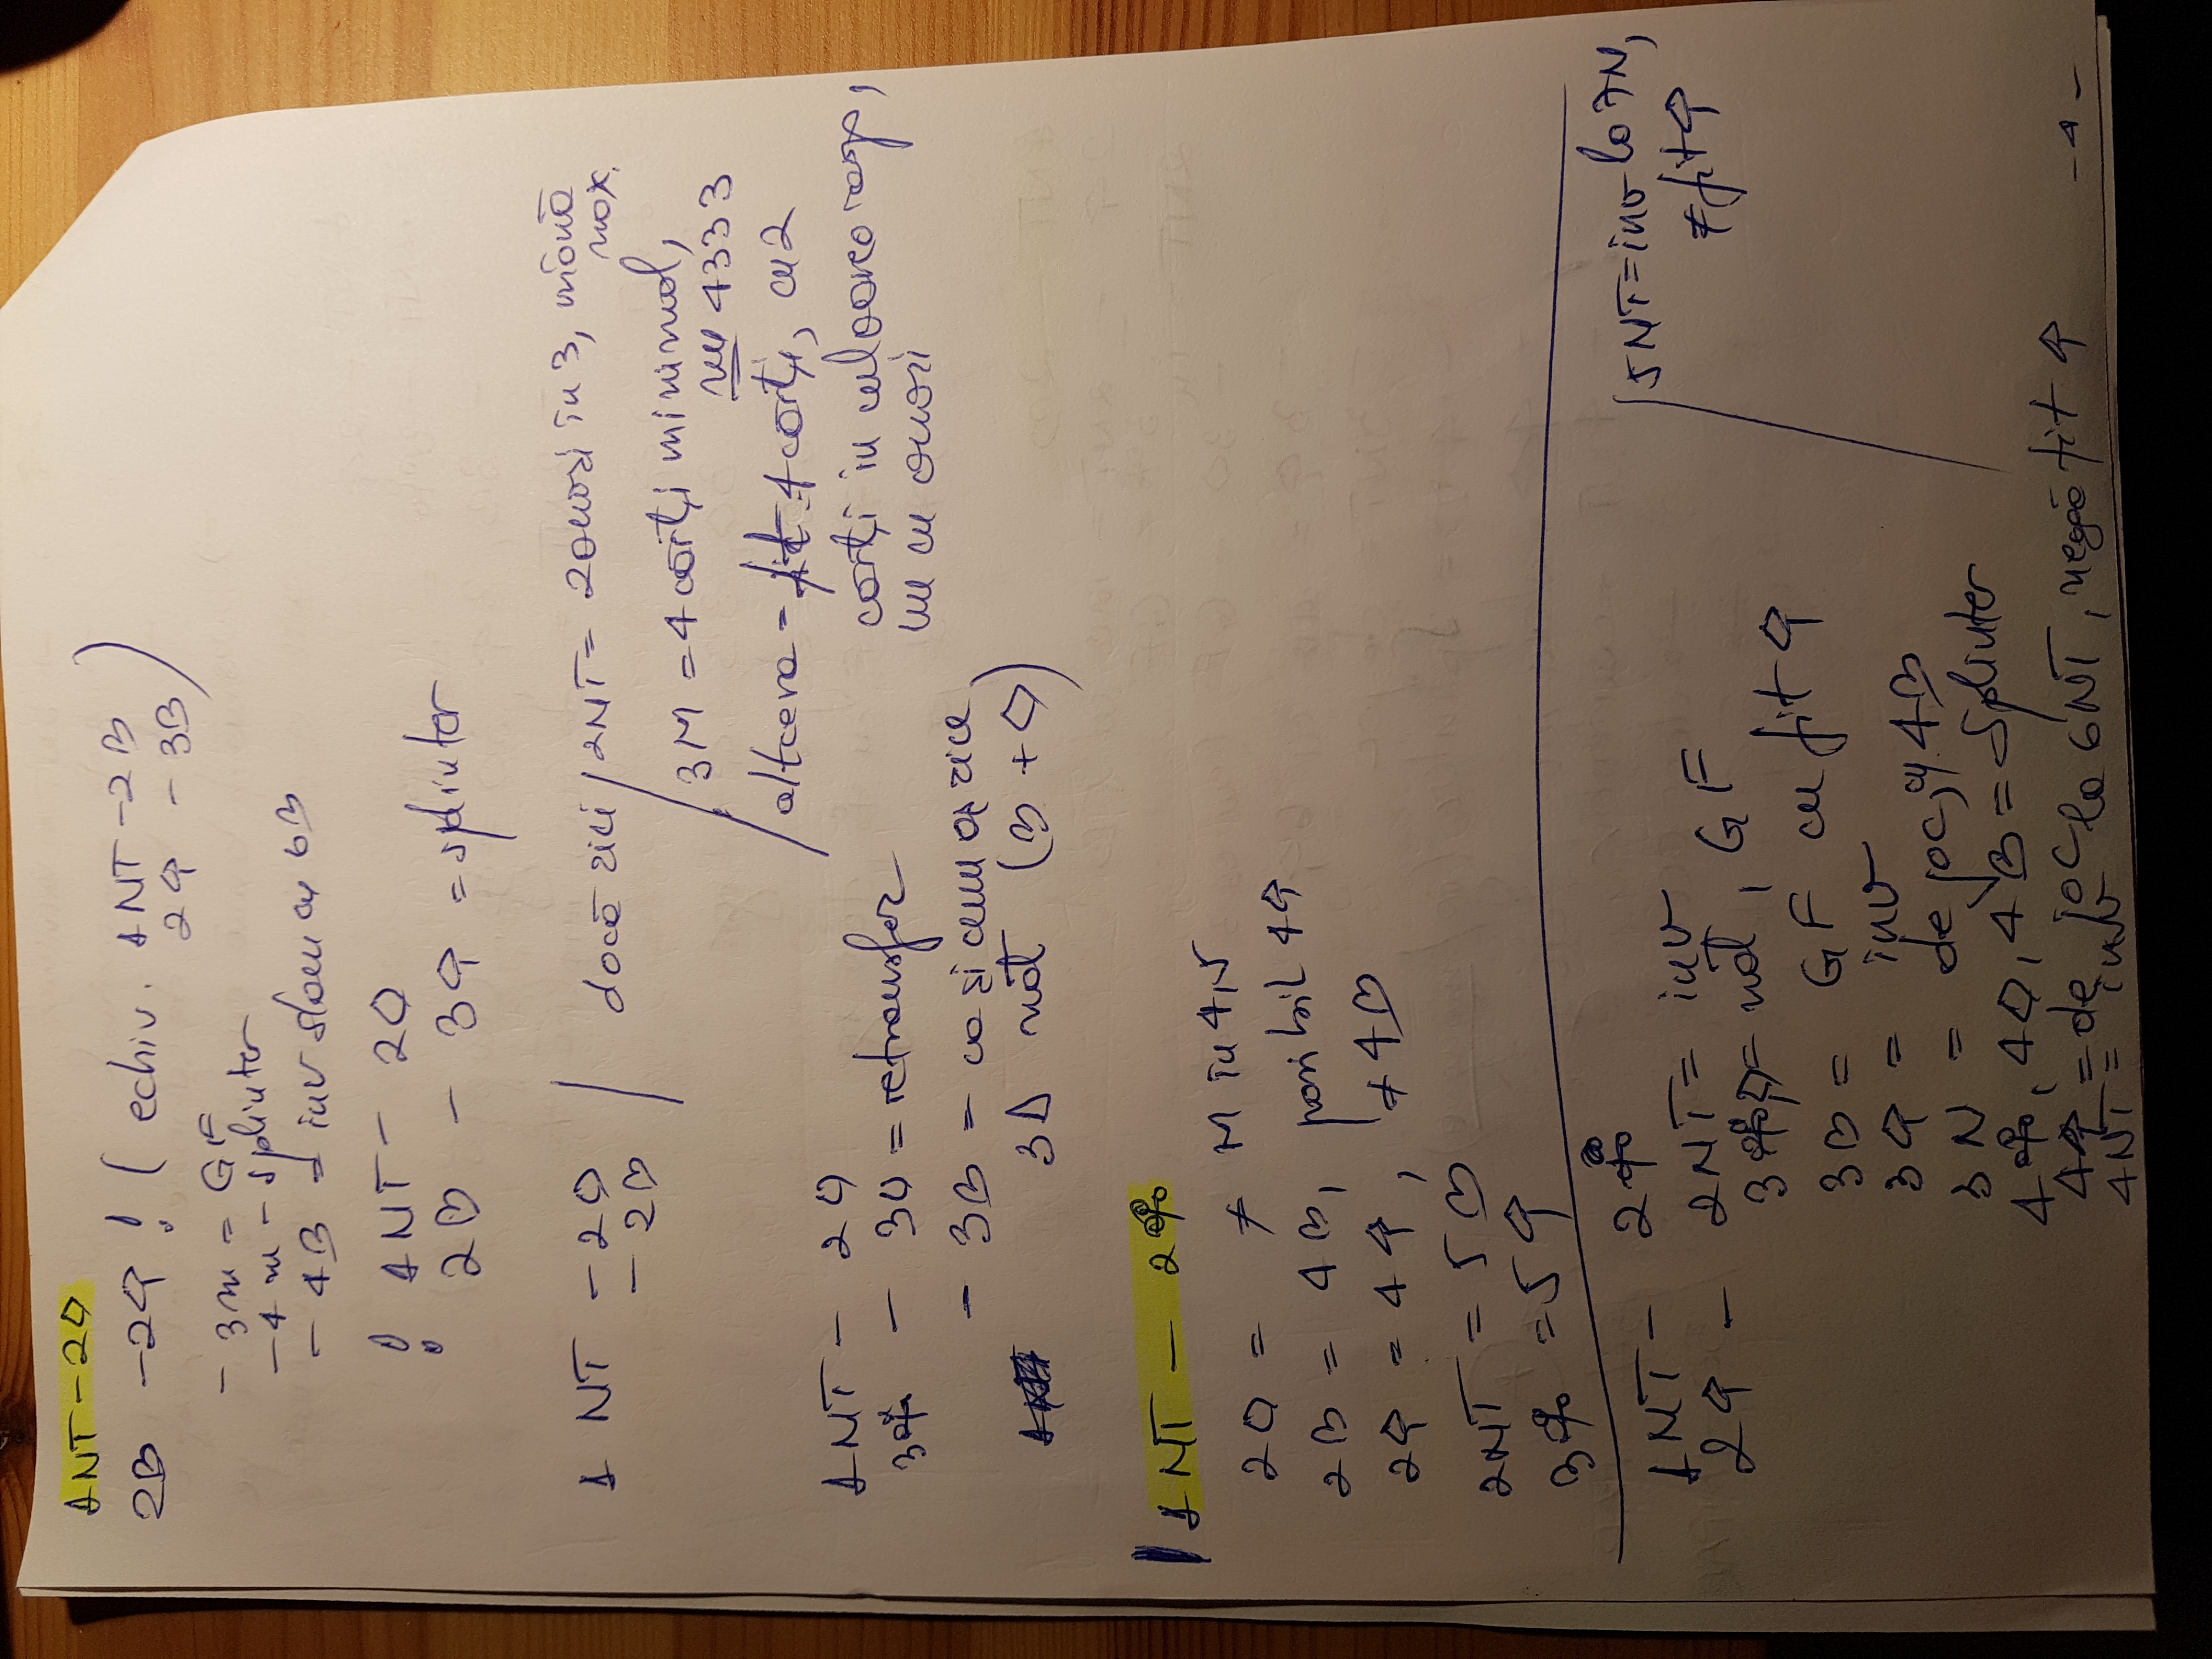 1NT – 2♢
2♡ – 2♤ ! ( echiv. 1NT – 2♡
2♤ – 3♡ )
– 3m = GF
– 4m – splinter
– 4♡ = inv slam cu 6♡
! 1NT – 2♢
2♡ – 3♤ = splinter
1 NT – 2♢ / dacă zici / 2NT = 2 onori în 3, mână
– 2♡ max.
3M = 4 cărți minimal,
nu 4333
altceva = fit 4 cărți, cu 2
cărți în culoarea resp,
nu cu onori
1NT – 2♢
3♣ – 3♢ = retransfer
– 3♡ = ca și cum aș zice
3♢ nat (♡ + ♢)
1NT – 2♣
2♢ = ≠ M în 4,5
2♡ = 4♡, posibil 4♤
2♤ = 4♤, ≠ 4♡
2NT = 5♡
3♣ = 5♤
1NT – 2♣
2♤ – 2NT = inv
3♣,♢ = nat, GF
3♡ = GF cu fit ♤
3♤ = inv
3N = de joc, cu 4♡
4♣, 4♢, 4♡ = Splinter
4♤ = de joc
4NT = inv la 6NT, neagă fit ♤
5NT = inv la 7N,
≠ fit ♤
– 4 –